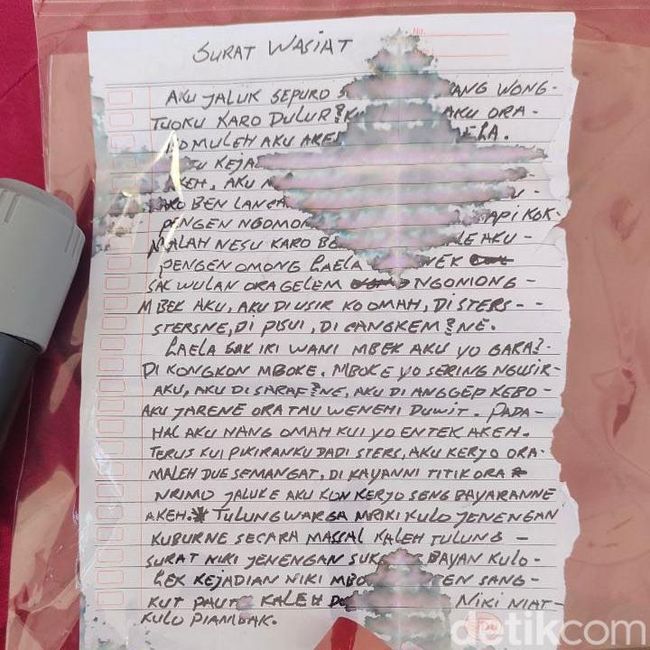 No.
SURAT WASIAT
AKU JALUK SEPURO ANG WONG-
TUOKU KARO DULUR? AKU ORA-
MULEH AKU
AKEH, AKU
BEN
PENGEN KOK-
MALAH NESU KARO AKU-
PENGEN OMONG LAELA
SAK WULAN ORA GELEM NGOMONG-
MBEK AKU, AKU DI USIR KO OMAH, DI STERS--
STERSNE, DI PISUI, DI CANGKEM?NE.
LAELA SAK IKI WANI MBEK AKU YO GARA?-
DI KONGKON MBOKE, MBOKE YO SERING NGUSIR-
AKU, AKU DI SARAF?NE, AKU DI ANGGEP KEBO-
AKU JARENE ORA TAU WENEHI DUWIT. PADA-
HAL AKU NANG OMAH KUI YO ENTEK AKEH.
TERUS KUI PIKIRANKU DADI STERS, AKU KERJO ORA-
MALEH DUE SEMANGAT, DI KAYANNI TITIK ORA
NRIMO JALUKE AKU KON KERJO SENG BAYARANNE
AKEH. TULUNG WARGA MRIKI KULO JENENGAN
KUBURNE SECARA MASSAL KALEH TULUNG -
SURAT NIKI JENENGAN BAYAN KULO-
LEK KEJADIAN NIKI SANG-
KUT PAUT KALEH NIKI NIAT-
KULO PIAMBAK.
detikcom